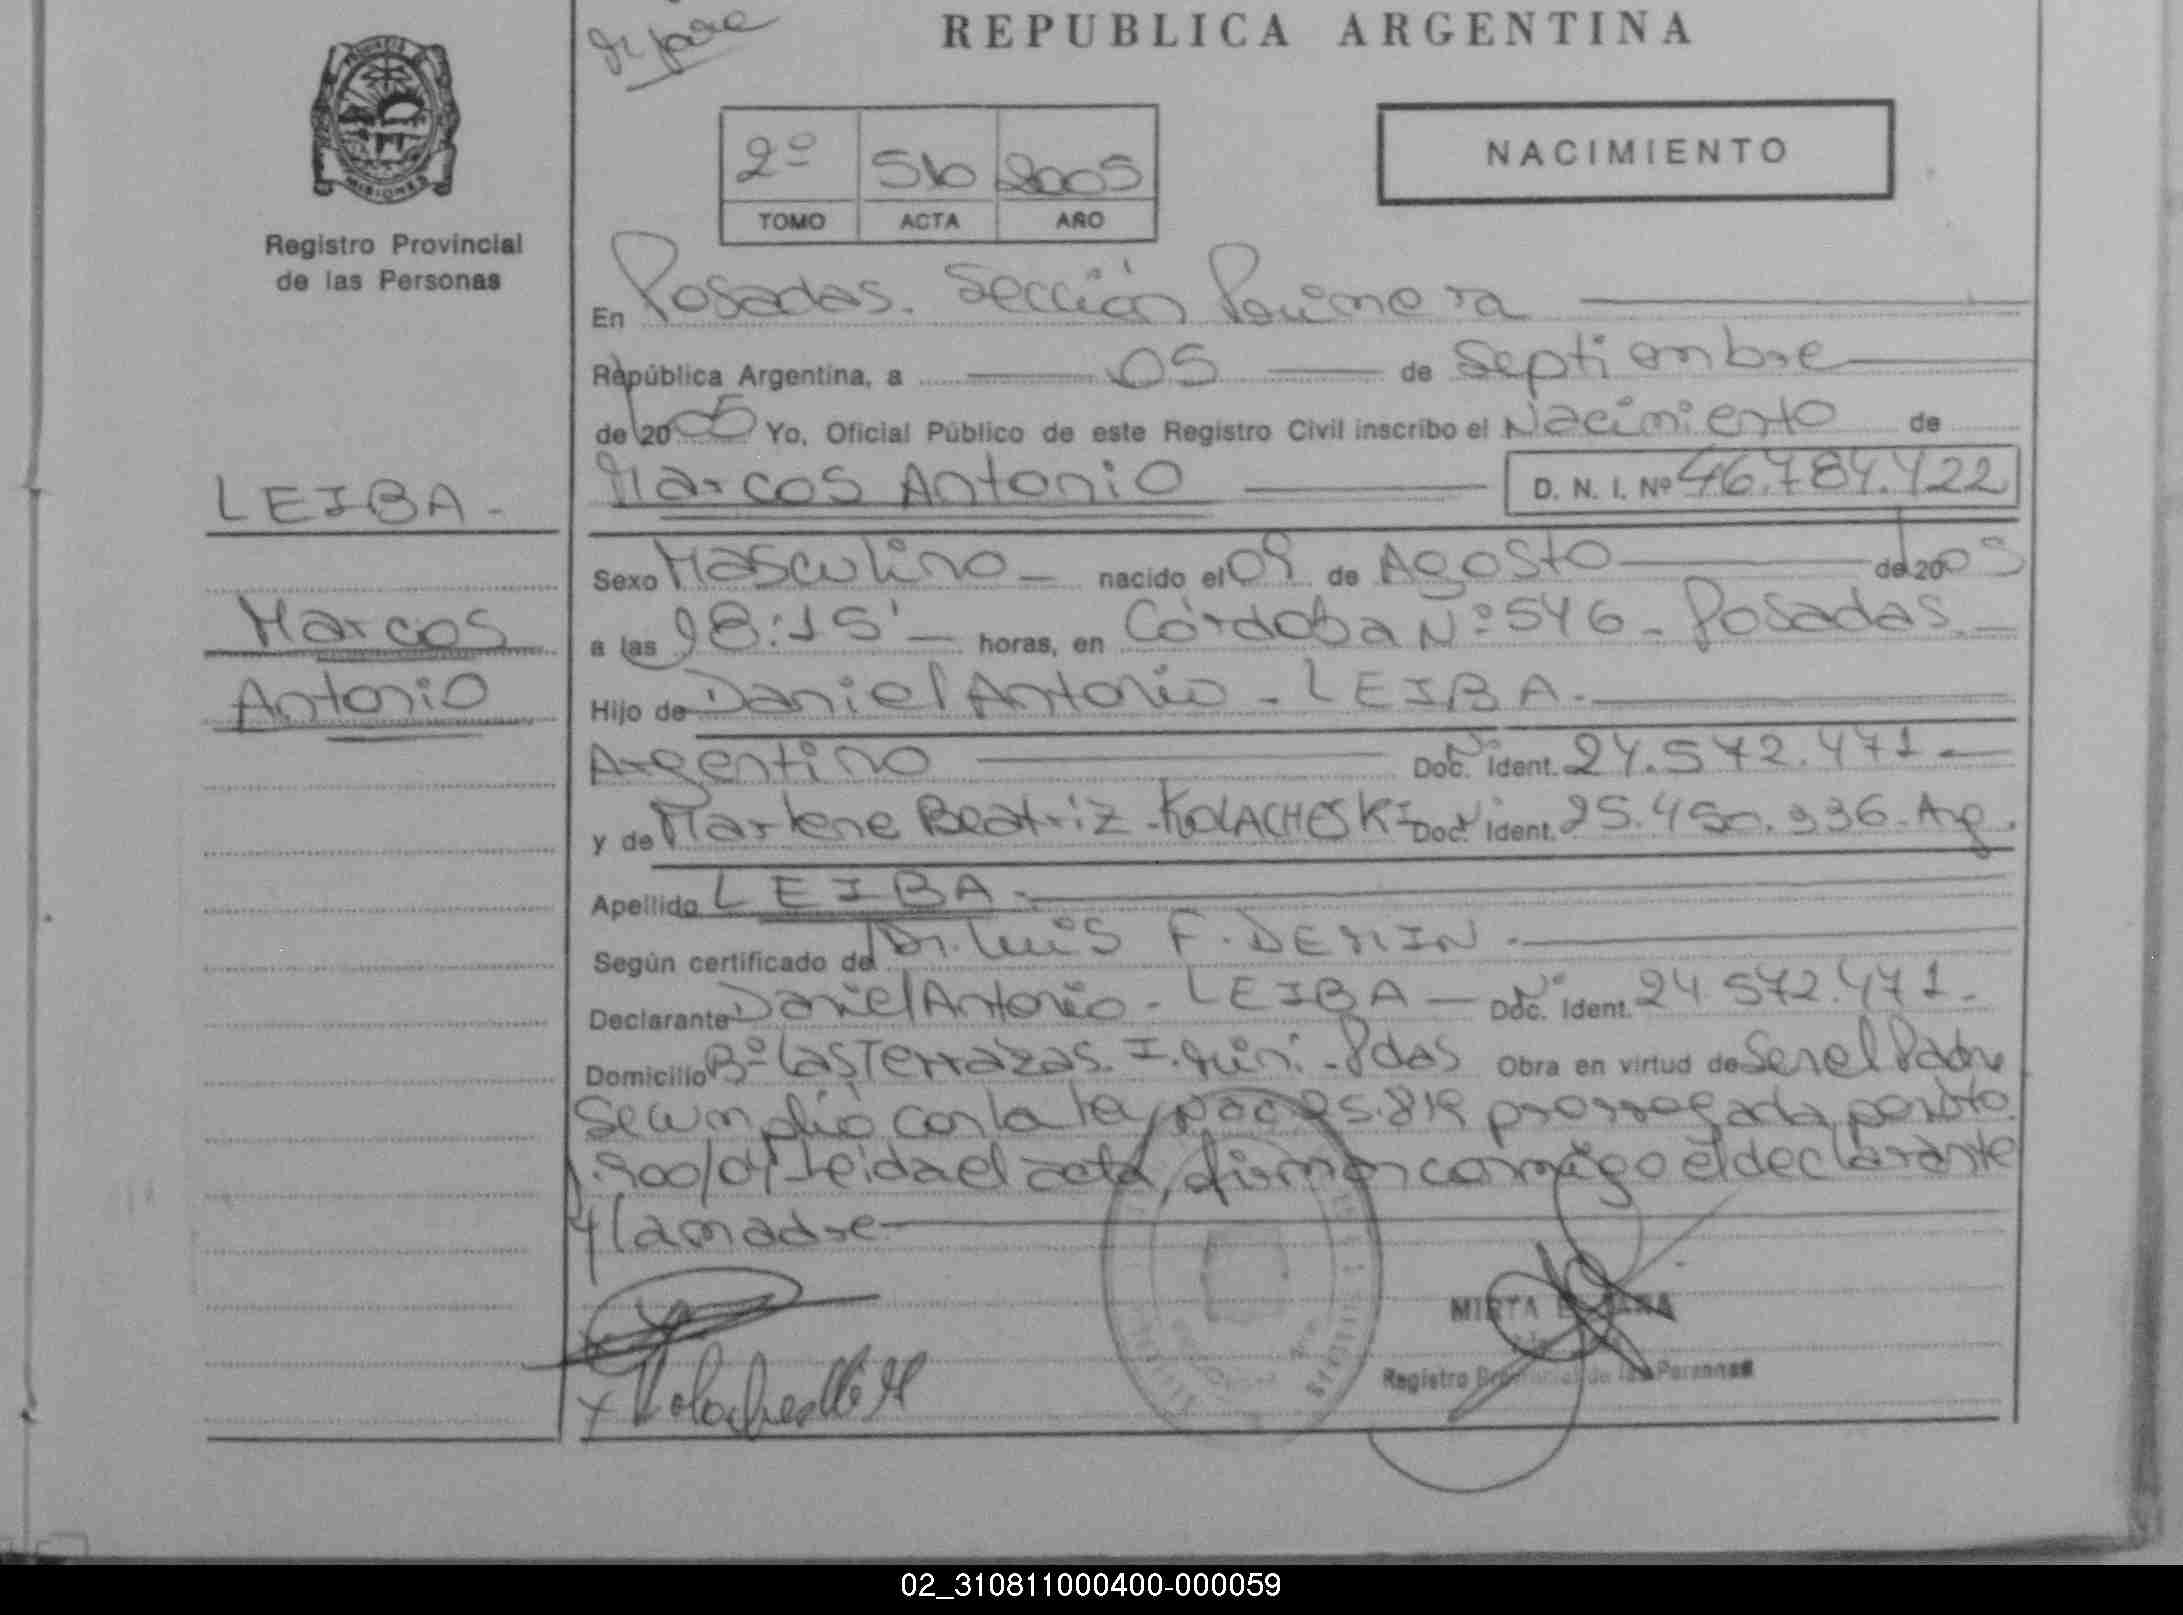 REPUBLICA ARGENTINA
MISIONES
Registro Provincial
de las Personas
2º 510 2005
TOMO ACTA AÑO
NACIMIENTO
En Posadas. Sección Primera
República Argentina, a 05 de Septiembre
de 2005 Yo, Oficial Público de este Registro Civil inscribo el Nacimiento de
Marcos Antonio D. N. I. Nº 46.784.422
LEIBA.
Marcos
Antonio
Sexo Masculino nacido el 09 de Agosto de 2005
a las 08:15' horas, en Córdoba Nº 546 - Posadas.
Hijo de Daniel Antonio - LEIBA.
Argentino Doc. Ident. 24.572.471
y de Marlene Beatriz - KOLACHESKI Doc. Ident. 25.450.336 - Arg.
Apellido LEIBA.
Según certificado de Dr. Luis F. DEMIN.
Declarante Daniel Antonio - LEIBA Doc. Ident. 24.572.471.
Domicilio Bº Las Terrazas. - Pdas Obra en virtud de Ser el Padre
Se cumplió con la Ley Nac 25.819 prorrogada por Dto.
.900/04 Leida el acta, firman conmigo el declarante
y la madre
MIRTA
Registro Provincial de las Personas
02_310811000400-000059